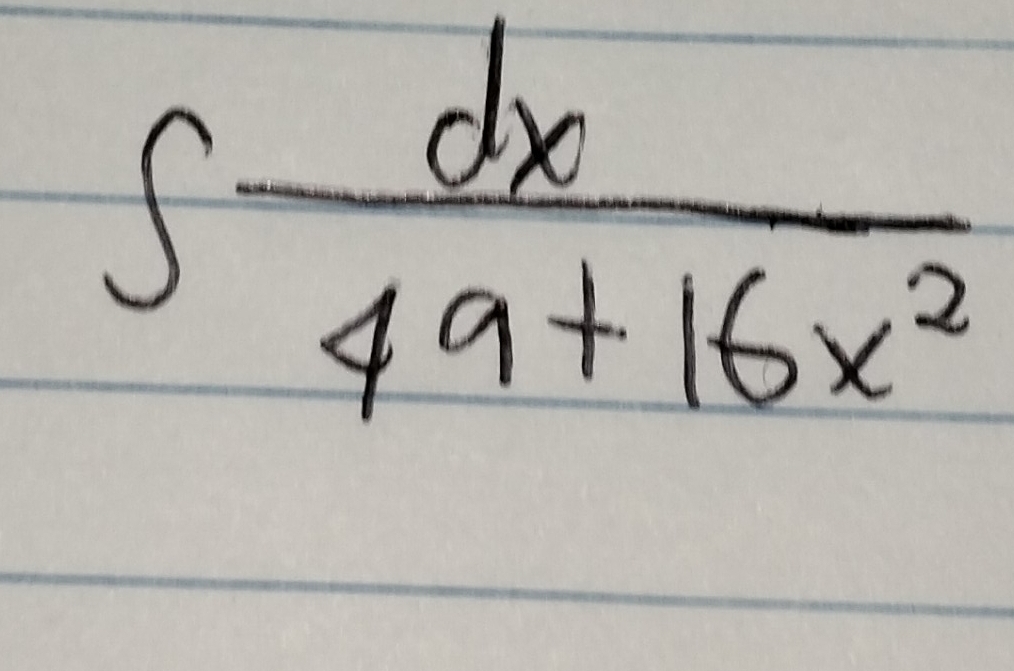 ∫ dx
49 + 16x²